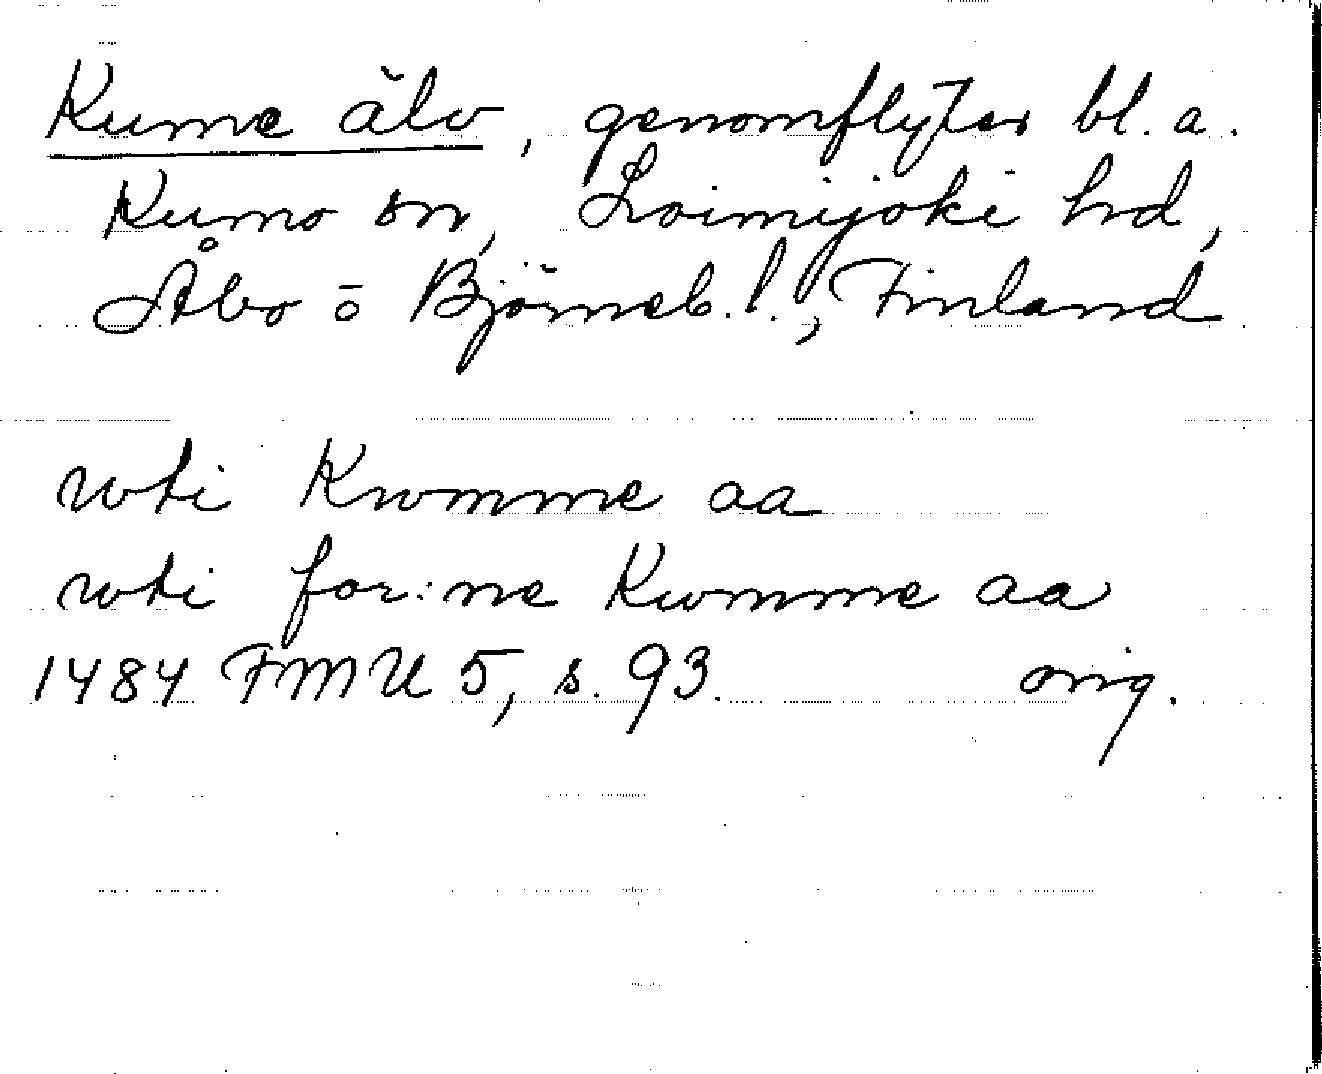 Kumo älv, genomflyter bl. a.
Kumo sn, Loimijoki hd,
Åbo o Björneb. l., Finland
wti Kwmme aa
wti for:ne Kwmme aa
1484 FMU 5, s. 93. orig.